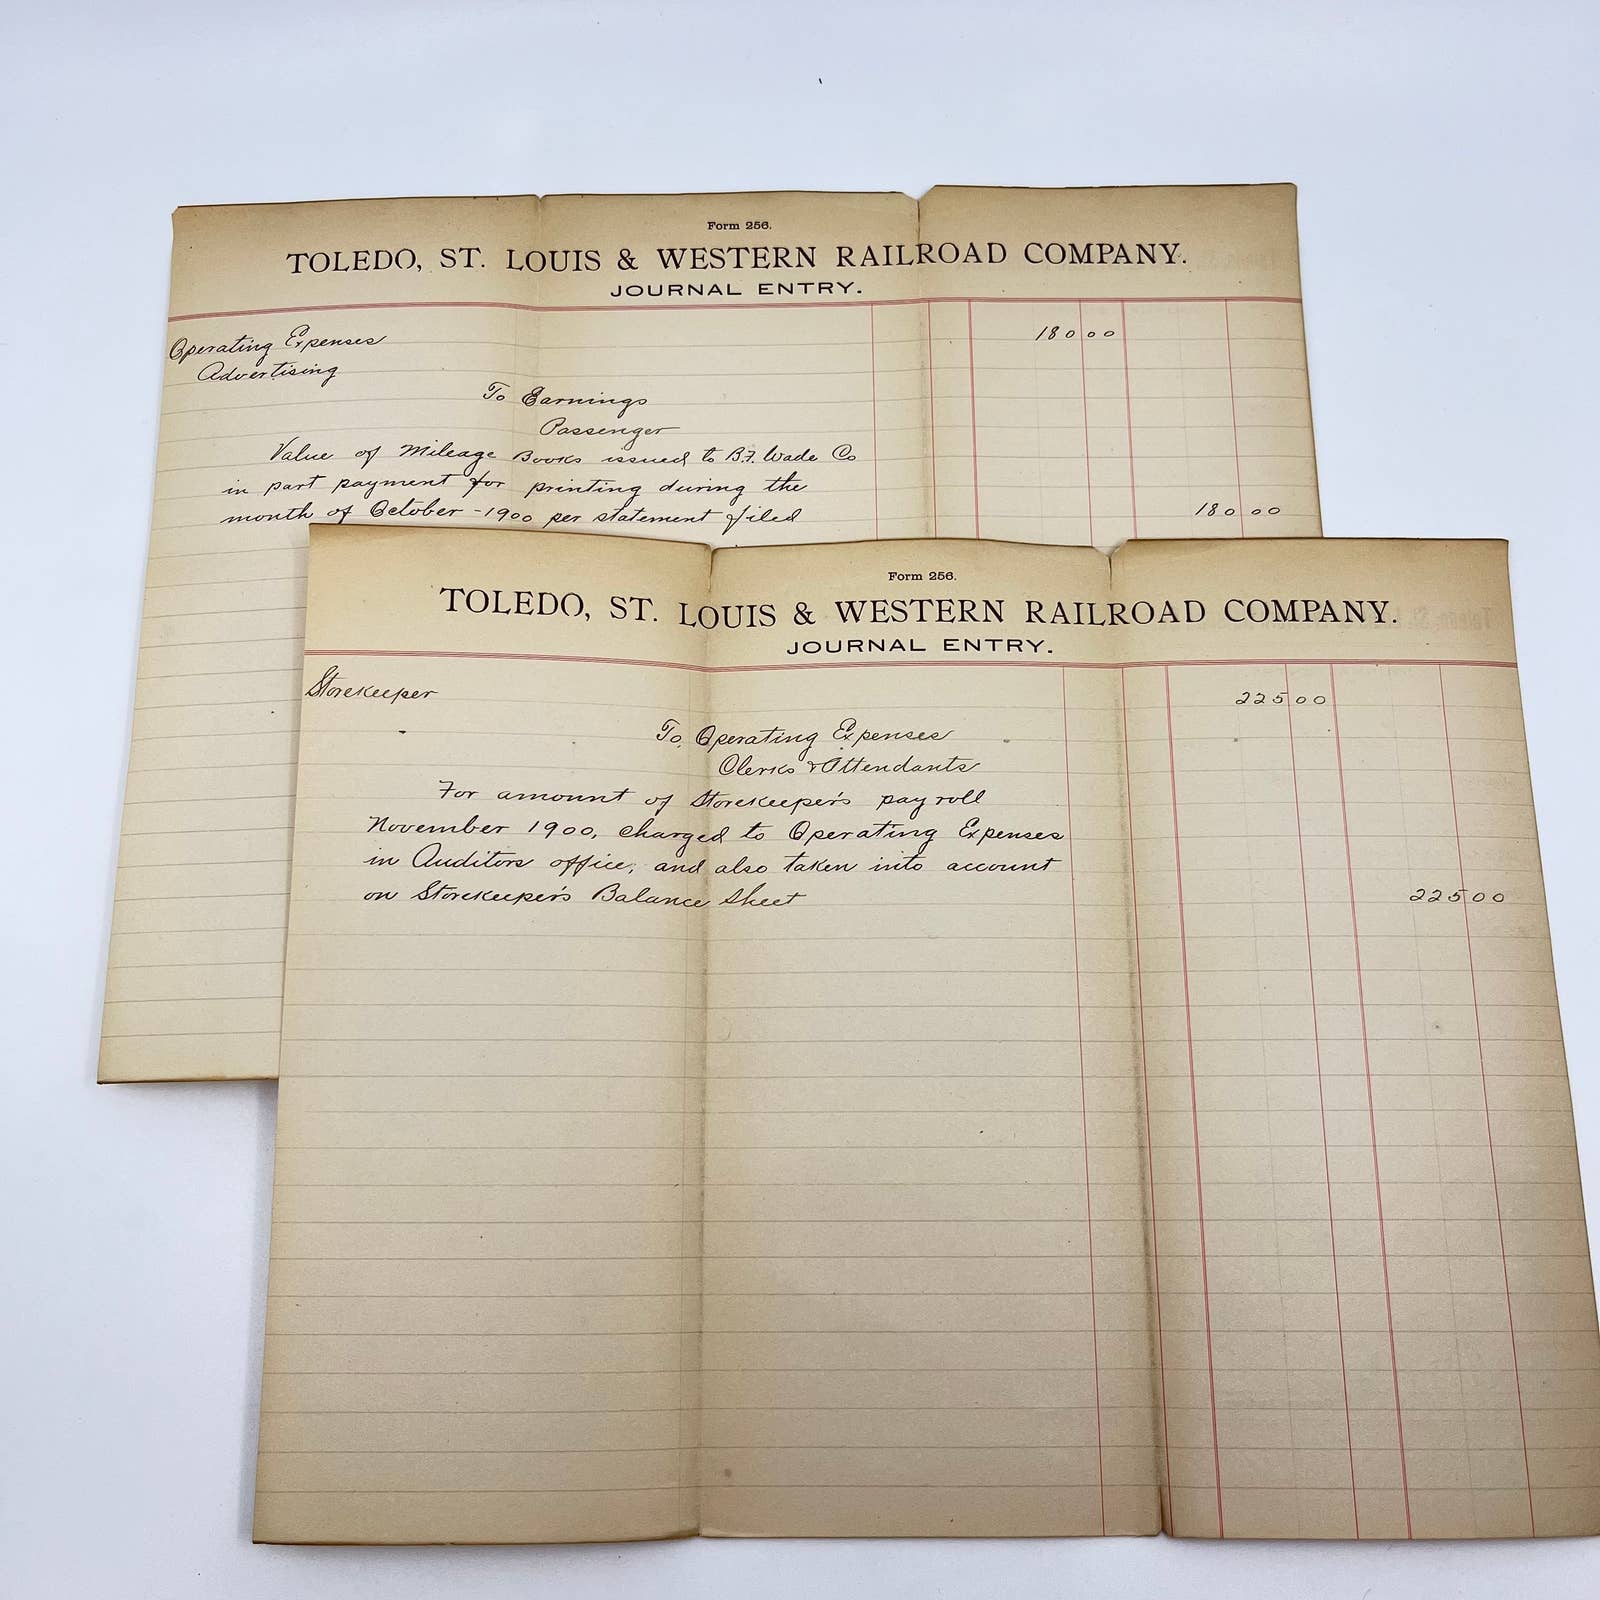 Form 256.
TOLEDO, ST. LOUIS & WESTERN RAILROAD COMPANY.
JOURNAL ENTRY.
Operating Expenses 180 00
Advertising
To Earnings
Passenger
Value of Mileage Books issued to B.F. Wade Co
in part payment for printing during the
month of October - 1900 per statement filed 180 00
Form 256.
TOLEDO, ST. LOUIS & WESTERN RAILROAD COMPANY.
JOURNAL ENTRY.
Storekeeper 225 00
To Operating Expenses
Clerks & Attendants
For amount of Storekeeper's pay roll
November 1900, charged to Operating Expenses
in Auditors office, and also taken into account
on Storekeeper's Balance Sheet 225 00